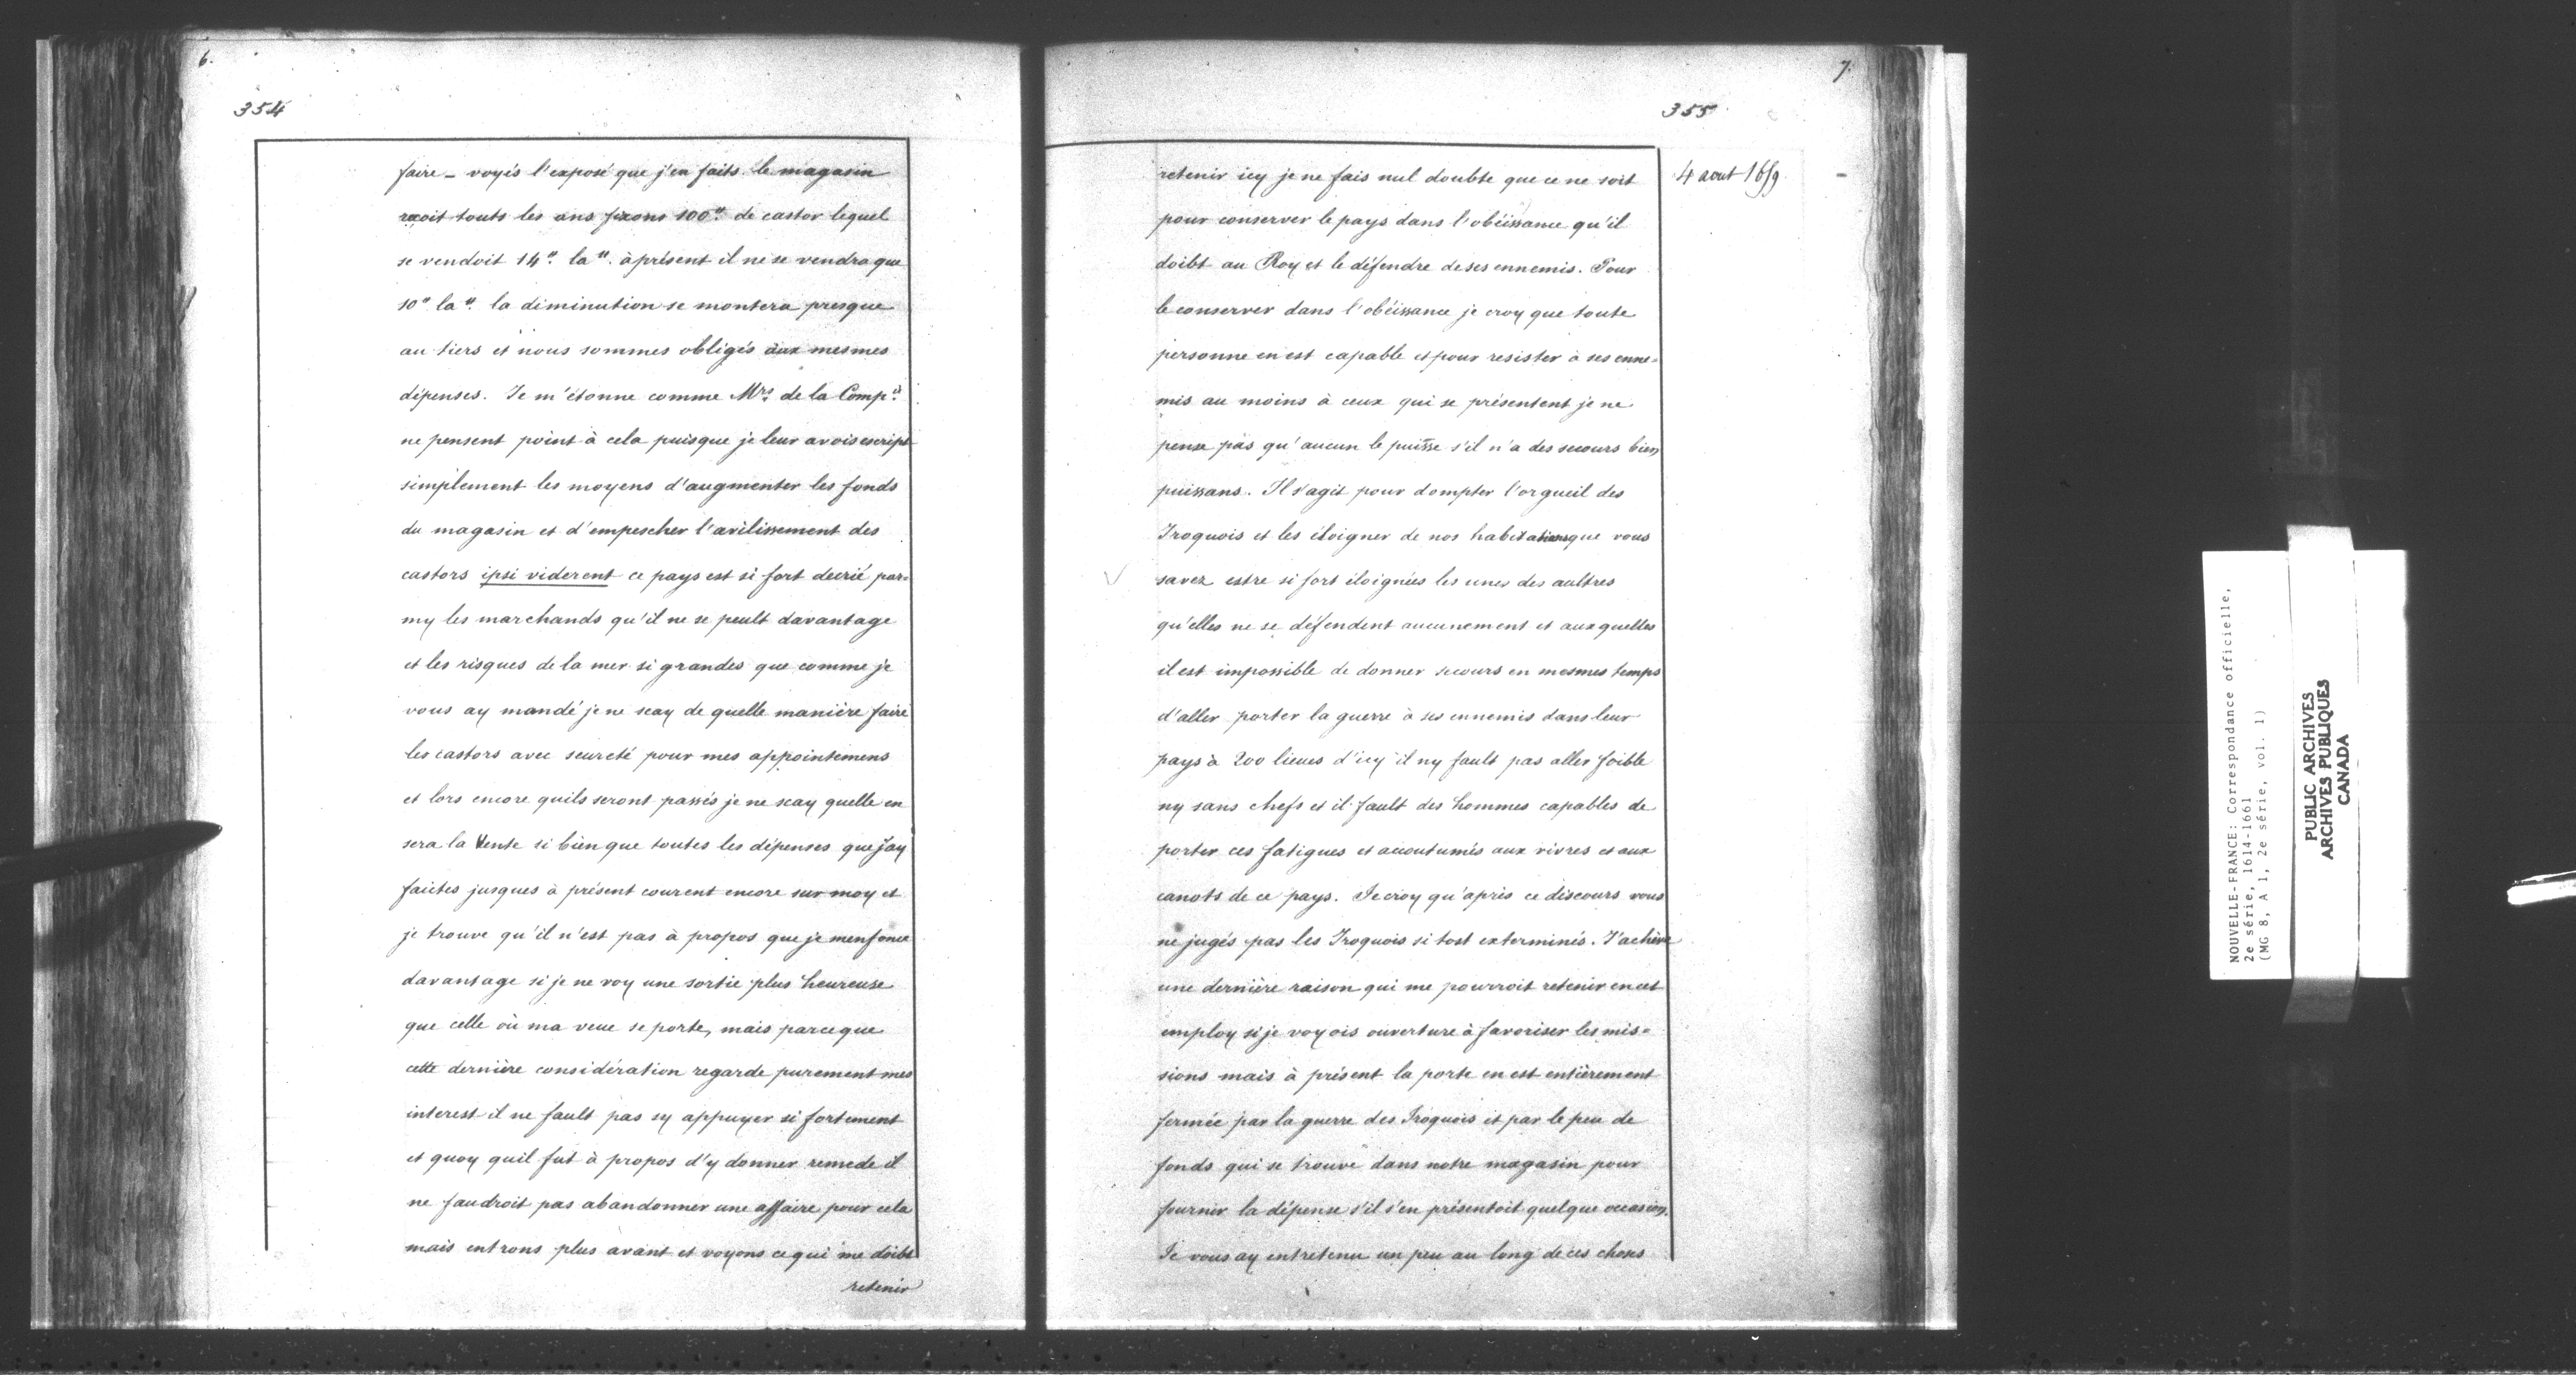 6.
354
faire _ voyés l'exposé que j'en faits. le magasin
reçoit touts les ans fixons 100# de castor lequel
se vendoit 14# la #. à présent il ne se vendra que
10# la #. la diminution se montera presque
au tiers et nous sommes obligés aux mesmes
dépenses. Je m'étonne comme Mrs. de la Comp.ie
ne pensent point à cela puisque je leur avois escript
simplement les moyens d'augmenter les fonds
du magasin et d'empescher l'avilissement des
castors ipsi viderent ce pays est si fort decrié par=
my les marchands qu'il ne se peult davantage
et les risques de la mer si grandes que comme je
vous ay mandé je ne scay de quelle manière faire
les castors avec seureté pour mes appointemens
et lors encore quils seront passés je ne scay quelle en
sera la Vente si bien que toutes les dépenses que j'ay
faictes jusques à présent courent encore sur moy et
je trouve qu'il n'est pas à propos que je menfonce
davantage si je ne voy une sortie plus heureuse
que celle où ma veue se porte, mais parceque
cette dernière considération regarde purement mes
interest il ne fault pas sy appuyer si fortement
et quoy quil fut à propos d'y donner remede il
ne faudroit pas abandonner une affaire pour cela
mais entrons plus avant et voyons ce qui me doibt
retenir
7.
355
4 aout 1659.
retenir icy je ne fais nul doubte que ce ne soit
pour conserver le pays dans l'obéissance qu'il
doibt au Roy et le défendre de ses ennemis. Pour
le conserver dans l'obéissance je croy que toute
personne en est capable et pour resister à ses enne=
mis au moins à ceux qui se présentent je ne
pense pas qu'aucun le puisse s'il n'a des secours bien
puissans. Il s'agit pour dompter l'orgueil des
Iroquois et les éloigner de nos habitations que vous
savez estre si fort éloignées les unes des aultres
qu'elles ne se défendent aucunement et auxquelles
il est impossible de donner secours en mesmes temps
d'aller porter la guerre à ses ennemis dans leur
pays à 200 lieues d'icy il ny fault pas aller foible
ny sans chefs et il fault des hommes capables de
porter ces fatigues et accoutumés aux vivres et aux
canots de ce pays. Je croy qu'après ce discours vous
ne jugés pas les Iroquois si tost exterminés. J'achève
une dernière raison qui me pourroit retenir en cet
employ si je voyois ouverture à favoriser les mis=
sions mais à présent la porte en est entièrement
fermée par la guerre des Iroquois et par le peu de
fonds qui se trouve dans notre magasin pour
fournir la dépense s'il s'en présentoit quelque occasion.
Je vous ay entretenu un peu au long de ces choses
NOUVELLE-FRANCE: Correspondance officielle,
2e série, 1614-1661
(MG 8, A 1, 2e série, vol. 1)
PUBLIC ARCHIVES
ARCHIVES PUBLIQUES
CANADA